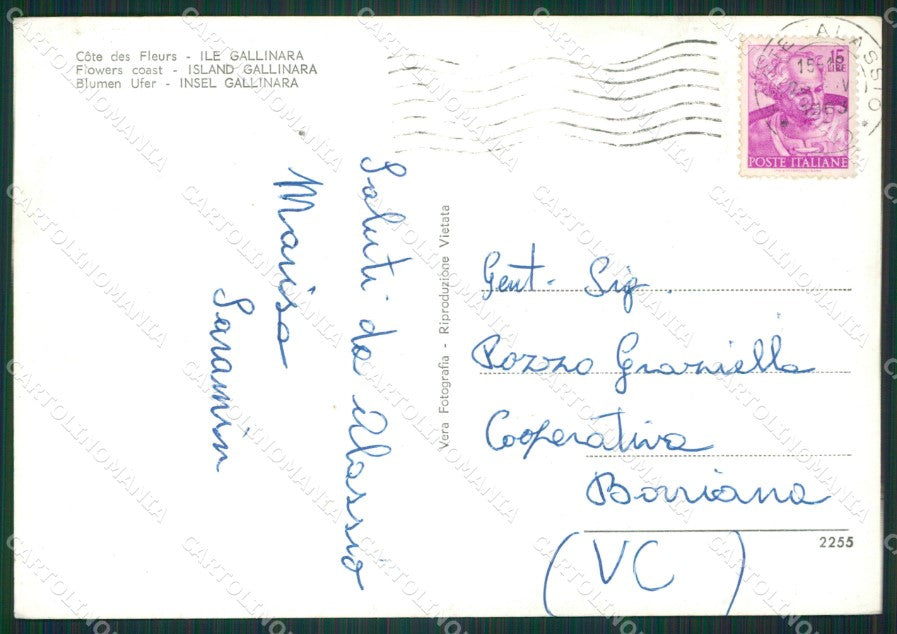 Côte des Fleurs - ILE GALLINARA
Flowers coast - ISLAND GALLINARA
Blumen Ufer - INSEL GALLINARA
15
LIRE
POSTE ITALIANE
ALASSIO
Saluti da Alassio
Marisa
Saramin
Vera Fotografia - Riproduzione Vietata
Gent. Sig.
Pozzo Graziella
Cooperativa
Borriana
(VC)
2255
CARTOLINOMANIA